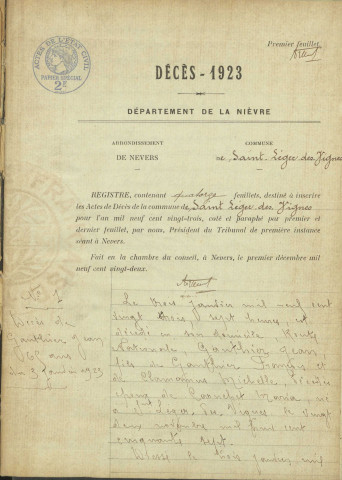 Première feuillet
ACTES DE L'ETAT CIVIL
PAPIER SPECIAL
2F
DÉCÈS - 1923
DÉPARTEMENT DE LA NIÈVRE
ARRONDISSEMENT
DE NEVERS
COMMUNE
DE Saint Léger des Vignes
REGISTRE, contenant quatorze feuillets, destiné à inscrire
les Actes de Décès de la commune de Saint Léger des Vignes
pour l'an mil neuf cent vingt-trois, coté et paraphé par premier et
dernier feuillet, par nous, Président du Tribunal de première instance
séant à Nevers.
Fait en la chambre du conseil, à Nevers, le premier décembre mil
neuf cent vingt-deux.
N° 1
Décès de
Gauthier Jean
65 ans
du 3 Janvier 1923
Le trois Janvier mil neuf cent
vingt trois, sept heures, est
décédé en son domicile, Route
Nationale, Gauthier Jean,
fils de Gauthier François et
de Michelle,
Maria, né
à St Léger des Vignes le vingt
deux novembre mil huit cent
cinquante sept.
le trois janvier mil